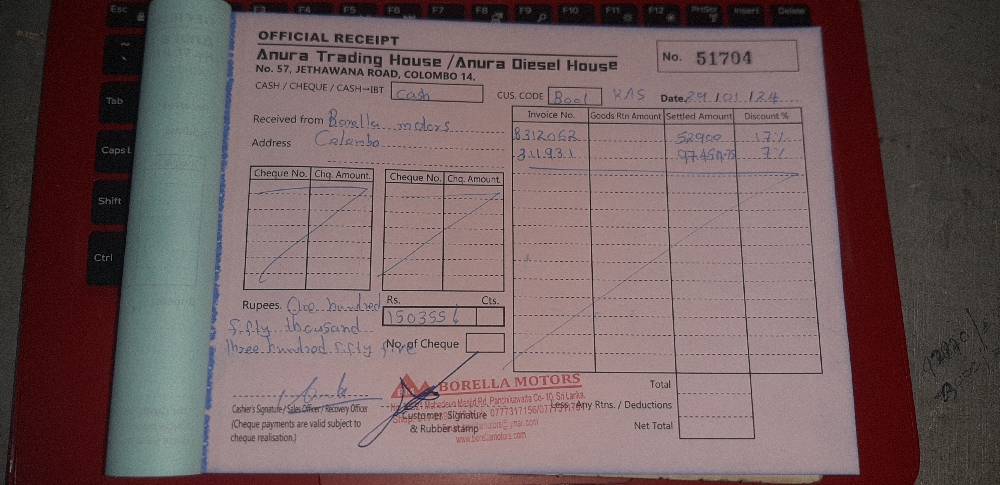 Esc F3 F4 F5 F6 F7 F8 F9 F10 F11 F12 PrtScr Insert Delete
Tab
Caps L
Shift
Ctrl
OFFICIAL RECEIPT
Anura Trading House / Anura Diesel House
No. 57, JETHAWANA ROAD, COLOMBO 14.
No. 51704
CASH / CHEQUE / CASH-IBT Cash
CUS. CODE
Date. 29/01/24
Received from Borella motors
Address Colombo
Invoice No. Goods Rtn Amount Settled Amount Discount %
8312062 52900 17%
311931 7%
Cheque No. Chq. Amount Cheque No. Chq. Amount
Rupees. One hundred
fifty thousand
three hundred fifty five
Rs. Cts.
150355
No. of Cheque
Total
Less - Any Rtns. / Deductions
Net Total
Cashier's Signature / Sales Officer / Recovery Officer
(Cheque payments are valid subject to
cheque realisation.)
Customer Signature
& Rubber stamp
BORELLA MOTORS
Masjid Rd, Panchikawatta Co- 10, Sri Lanka.
0777317156
www.borellamotors.com